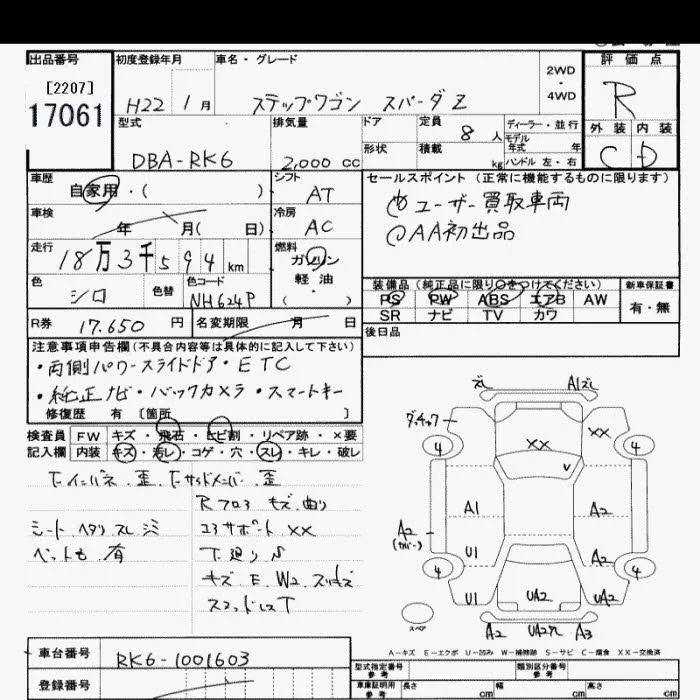 出品番号
[2207]
17061
初度登録年月
H22 1月
車名・グレード
ステップワゴン スパーダ Z
2WD
・
4WD
評価点
R
外装 内装
C D
型式
DBA-RK6
排気量
2,000 cc
ドア
形状
定員
8 人
積載
kg
ディーラー・並行
モデル
年式 年
ハンドル 左・右
車歴
自家用・( )
シフト
AT
セールスポイント (正常に機能するものに限ります)
ユーザー買取車両
AA初出品
車検
年 月( 日)
冷房
AC
走行
18万3千594 km
燃料
ガソリン
・
軽油
・
( )
色
シロ
色替
色コード
NH624P
装備品 (純正品に限り○をつけてください)
PS PW ABS エアB AW
SR ナビ TV カワ
新車保証書
有・無
R券 17.650 円
名変期限 月 日
後日品
注意事項申告欄(不具合内容等は具体的に記入して下さい)
・両側パワースライドドア・ETC
・純正ナビ・バックカメラ・スマートキー
修復歴 有 〔箇所 〕
検査員
記入欄
FW キズ・飛石・ヒビ割・リペア跡・×要
内装 キズ・汚レ・コゲ・穴・スレ・キレ・破レ
F.インパネ 歪 F.サイドメンバー 歪
Rフロア キズ 曲り
シート ヘタリ スレ シミ
コアサポート XX
ペットモ 有
下廻りS
キズ E W2
ズレ A1ズレ
XX XX
4 4
A1 A2
A2
(カバー)
U1 A2
4 4
U1 UA2 UA2
スペア
A2 A3
A-キズ E-エクボ U-凹み W-補修跡 S-サビ C-腐食 XX-交換済
車台番号
RK6-1001603
登録番号
型式指定番号
参考
類別区分番号
参考
車庫証明用
参考
長さ cm
幅 cm
高さ cm